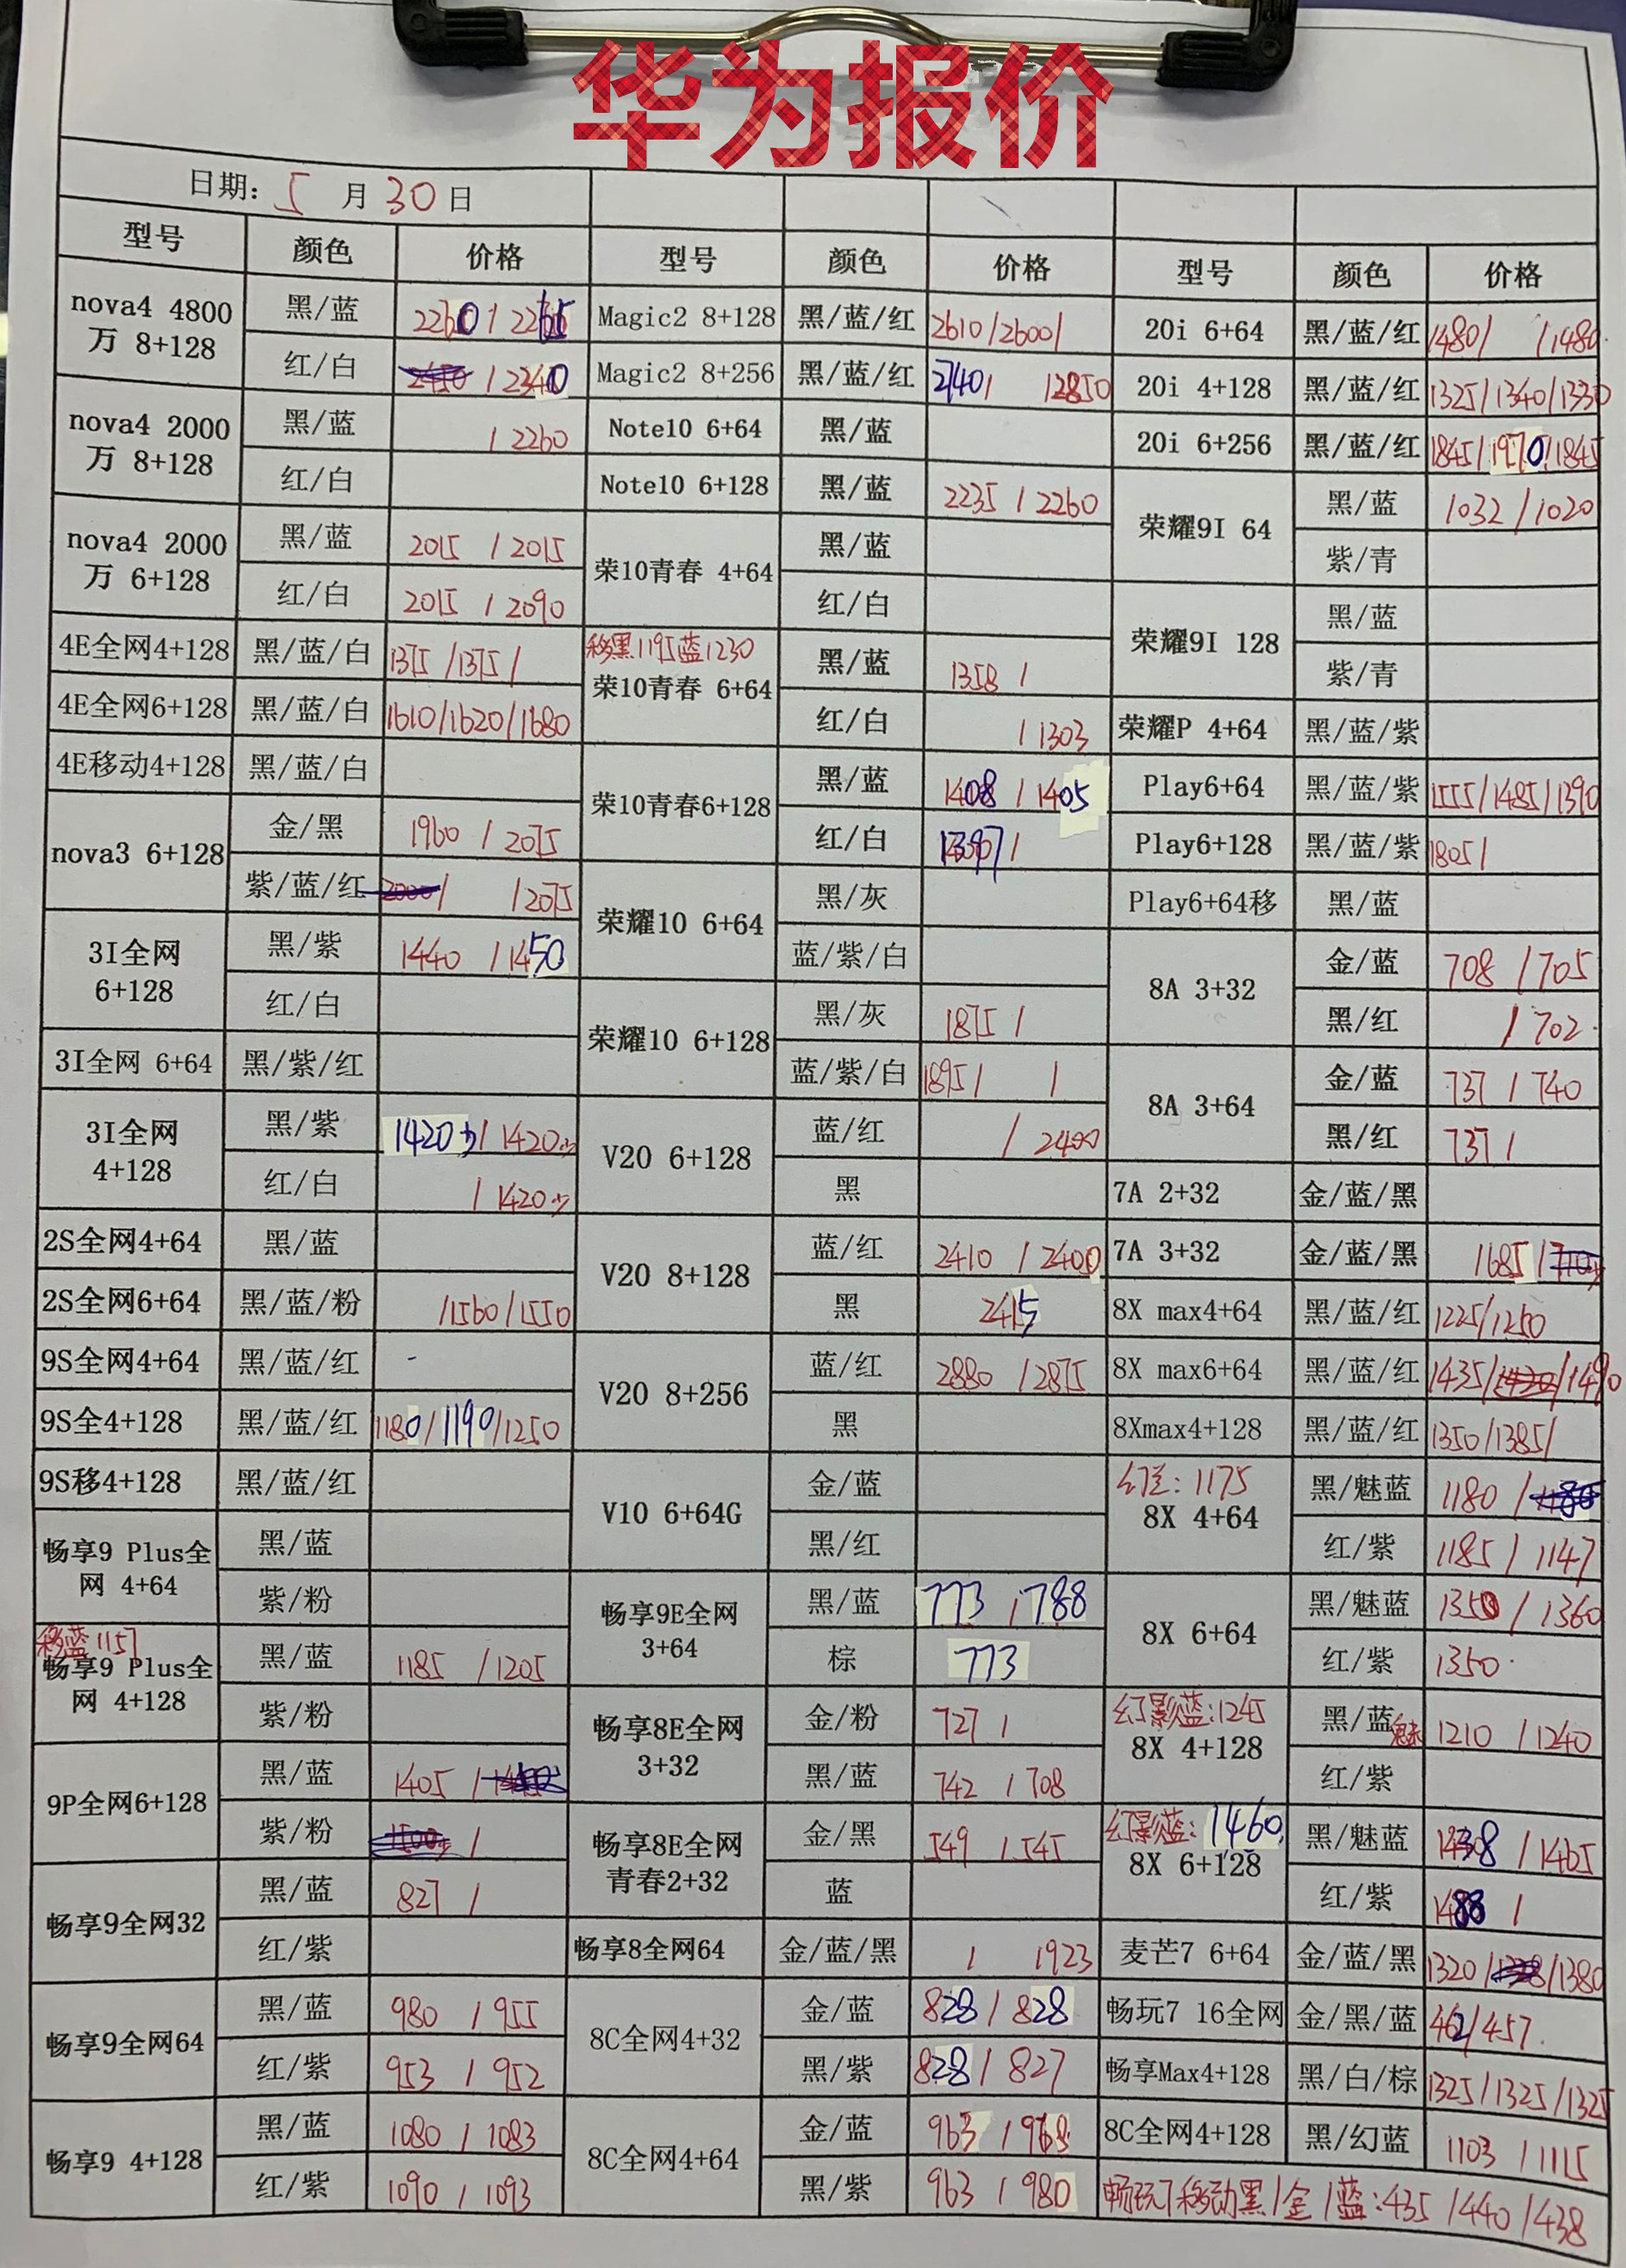 华为报价
日期: 5 月 30 日
型号 颜色 价格 型号 颜色 价格 型号 颜色 价格
nova4 4800万 8+128 黑/蓝 2260 / 2265
红/白 / 2340
nova4 2000万 8+128 黑/蓝 / 2260
红/白
nova4 2000万 6+128 黑/蓝 2015 / 2015
红/白 2015 / 2090
4E全网4+128 黑/蓝/白 1375 /1375/
4E全网6+128 黑/蓝/白 1610/1620/1680
4E移动4+128 黑/蓝/白
nova3 6+128 金/黑 1960 / 2075
紫/蓝/红 / /2075
3I全网 6+128 黑/紫 1440 / 1450
红/白
3I全网 6+64 黑/紫/红
3I全网 4+128 黑/紫 1420少/ 1420少
红/白 / 1420少
2S全网4+64 黑/蓝
2S全网6+64 黑/蓝/粉 /1560/1550
9S全网4+64 黑/蓝/红 -
9S全4+128 黑/蓝/红 1180/1190/1250
9S移4+128 黑/蓝/红
畅享9 Plus全网 4+64 黑/蓝
紫/粉
移蓝1157
畅享9 Plus全网 4+128 黑/蓝 1185 /1205
紫/粉
9P全网6+128 黑/蓝 1405 /
紫/粉 /
畅享9全网32 黑/蓝 827 /
红/紫
畅享9全网64 黑/蓝 980 / 955
红/紫 953 / 952
畅享9 4+128 黑/蓝 1080 / 1083
红/紫 1090 / 1093
Magic2 8+128 黑/蓝/红 2610/2600/
Magic2 8+256 黑/蓝/红 2740/ /2850
Note10 6+64 黑/蓝
Note10 6+128 黑/蓝 2235 / 2260
荣10青春 4+64 黑/蓝
红/白
移黑1195蓝1230
荣10青春 6+64 黑/蓝 1358 /
红/白 / 1303
荣10青春6+128 黑/蓝 1408 / 1405
红/白 1397 /
荣耀10 6+64 黑/灰
蓝/紫/白
荣耀10 6+128 黑/灰 1875 /
蓝/紫/白 1895/ /
V20 6+128 蓝/红 / 2400
黑
V20 8+128 蓝/红 2410 / 2400
黑 2415
V20 8+256 蓝/红 2880 / 2875
黑
V10 6+64G 金/蓝
黑/红
畅享9E全网 3+64 黑/蓝 773 / 788
棕 773
畅享8E全网 3+32 金/粉 727 /
黑/蓝 742 / 708
畅享8E全网 青春2+32 金/黑 549 / 545
蓝
畅享8全网64 金/蓝/黑 / 1923
8C全网4+32 金/蓝 828 / 828
黑/紫 828 / 827
8C全网4+64 金/蓝 963 / 968
黑/紫 963 / 980
20i 6+64 黑/蓝/红 1480/ /1480
20i 4+128 黑/蓝/红 1325/1340/1330
20i 6+256 黑/蓝/红 1845/1970/1845
荣耀9I 64 黑/蓝 1032 /1020
紫/青
荣耀9I 128 黑/蓝
紫/青
荣耀P 4+64 黑/蓝/紫
Play6+64 黑/蓝/紫 1555/1485/1390
Play6+128 黑/蓝/紫 1805/
Play6+64移 黑/蓝
8A 3+32 金/蓝 708 /705
黑/红 / 702
8A 3+64 金/蓝 737 / 740
黑/红 737 /
7A 2+32 金/蓝/黑
7A 3+32 金/蓝/黑 /685/
8X max4+64 黑/蓝/红 1225/1250
8X max6+64 黑/蓝/红 1435/ /1490
8Xmax4+128 黑/蓝/红 1350/1385/
幻兰: 1175
8X 4+64 黑/魅蓝 1180 /
红/紫 1185 / 1147
8X 6+64 黑/魅蓝 1350 / 1360
红/紫 1350
幻影蓝:1245
8X 4+128 黑/蓝魅 1210 / 1240
红/紫
幻影蓝: 1460
8X 6+128 黑/魅蓝 1438 / 1465
红/紫 1488 /
麦芒7 6+64 金/蓝/黑 1320/ /1380
畅玩7 16全网 金/黑/蓝 462/457
畅享Max4+128 黑/白/棕 1325/1325/1325
8C全网4+128 黑/幻蓝 1103 / 1115
畅玩7移动黑/金/蓝:435 /440 /438